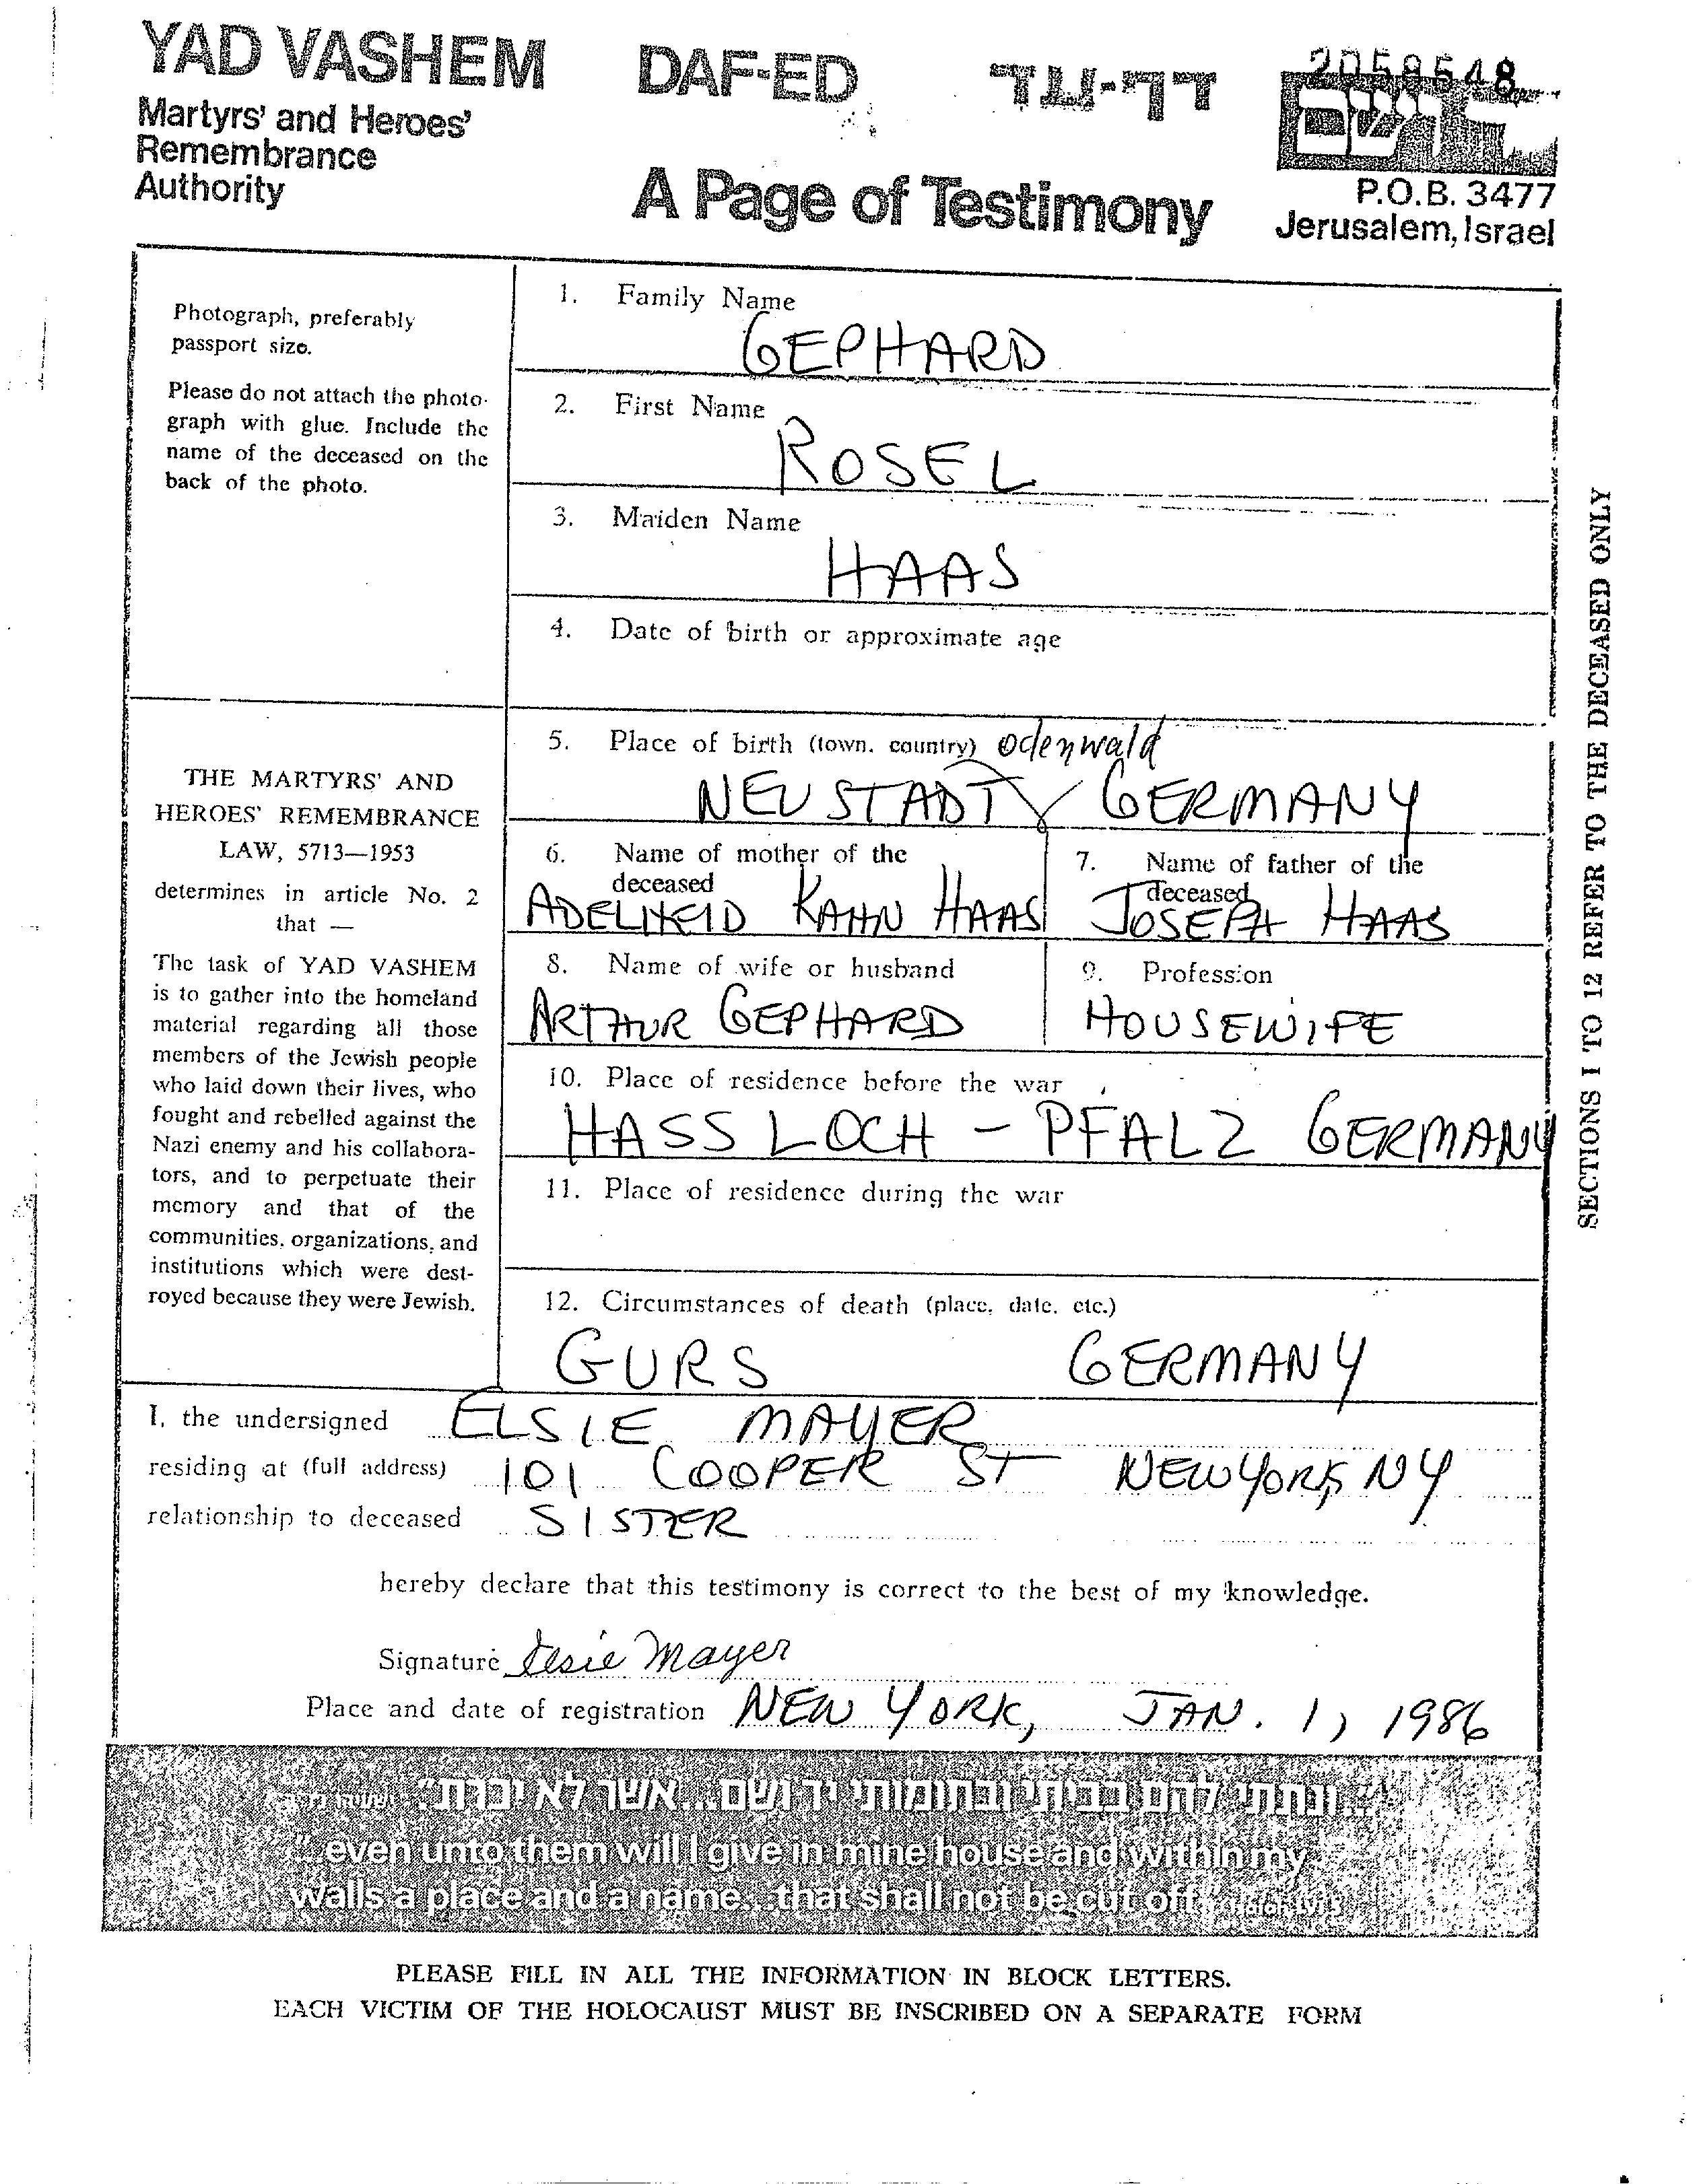 YAD VASHEM
Martyrs' and Heroes'
Remembrance
Authority
DAF-ED
דף-עד
A Page of Testimony
2058648
P.O.B. 3477
Jerusalem, Israel
Photograph, preferably
passport size.
Please do not attach the photo-
graph with glue. Include the
name of the deceased on the
back of the photo.
THE MARTYRS' AND
HEROES' REMEMBRANCE
LAW, 5713—1953
determines in article No. 2
that —
The task of YAD VASHEM
is to gather into the homeland
material regarding all those
members of the Jewish people
who laid down their lives, who
fought and rebelled against the
Nazi enemy and his collabora-
tors, and to perpetuate their
memory and that of the
communities, organizations, and
institutions which were dest-
royed because they were Jewish.
1. Family Name
GEPHARD
2. First Name
ROSEL
3. Maiden Name
HAAS
4. Date of birth or approximate age
5. Place of birth (town, country) Odenwald
NEUSTADT GERMANY
6. Name of mother of the
deceased
ADELHEID KAHN HAAS
7. Name of father of the
deceased
JOSEPH HAAS
8. Name of wife or husband
ARTHUR GEPHARD
9. Profession
HOUSEWIFE
10. Place of residence before the war
HASSLOCH - PFALZ GERMANY
11. Place of residence during the war
12. Circumstances of death (place, date, etc.)
GURS GERMANY
SECTIONS 1 TO 12 REFER TO THE DECEASED ONLY
I, the undersigned ELSIE MAYER
residing at (full address) 101 COOPER ST NEW YORK, NY
relationship to deceased SISTER
hereby declare that this testimony is correct to the best of my knowledge.
Signature Elsie Mayer
Place and date of registration NEW YORK, JAN. 1, 1986
"...ונתתי להם בביתי ובחומותי יד ושם...אשר לא יכרת"
"...even unto them will I give in mine house and within my
walls a place and a name...that shall not be cut off" Isaiah LVI 5
PLEASE FILL IN ALL THE INFORMATION IN BLOCK LETTERS.
EACH VICTIM OF THE HOLOCAUST MUST BE INSCRIBED ON A SEPARATE FORM